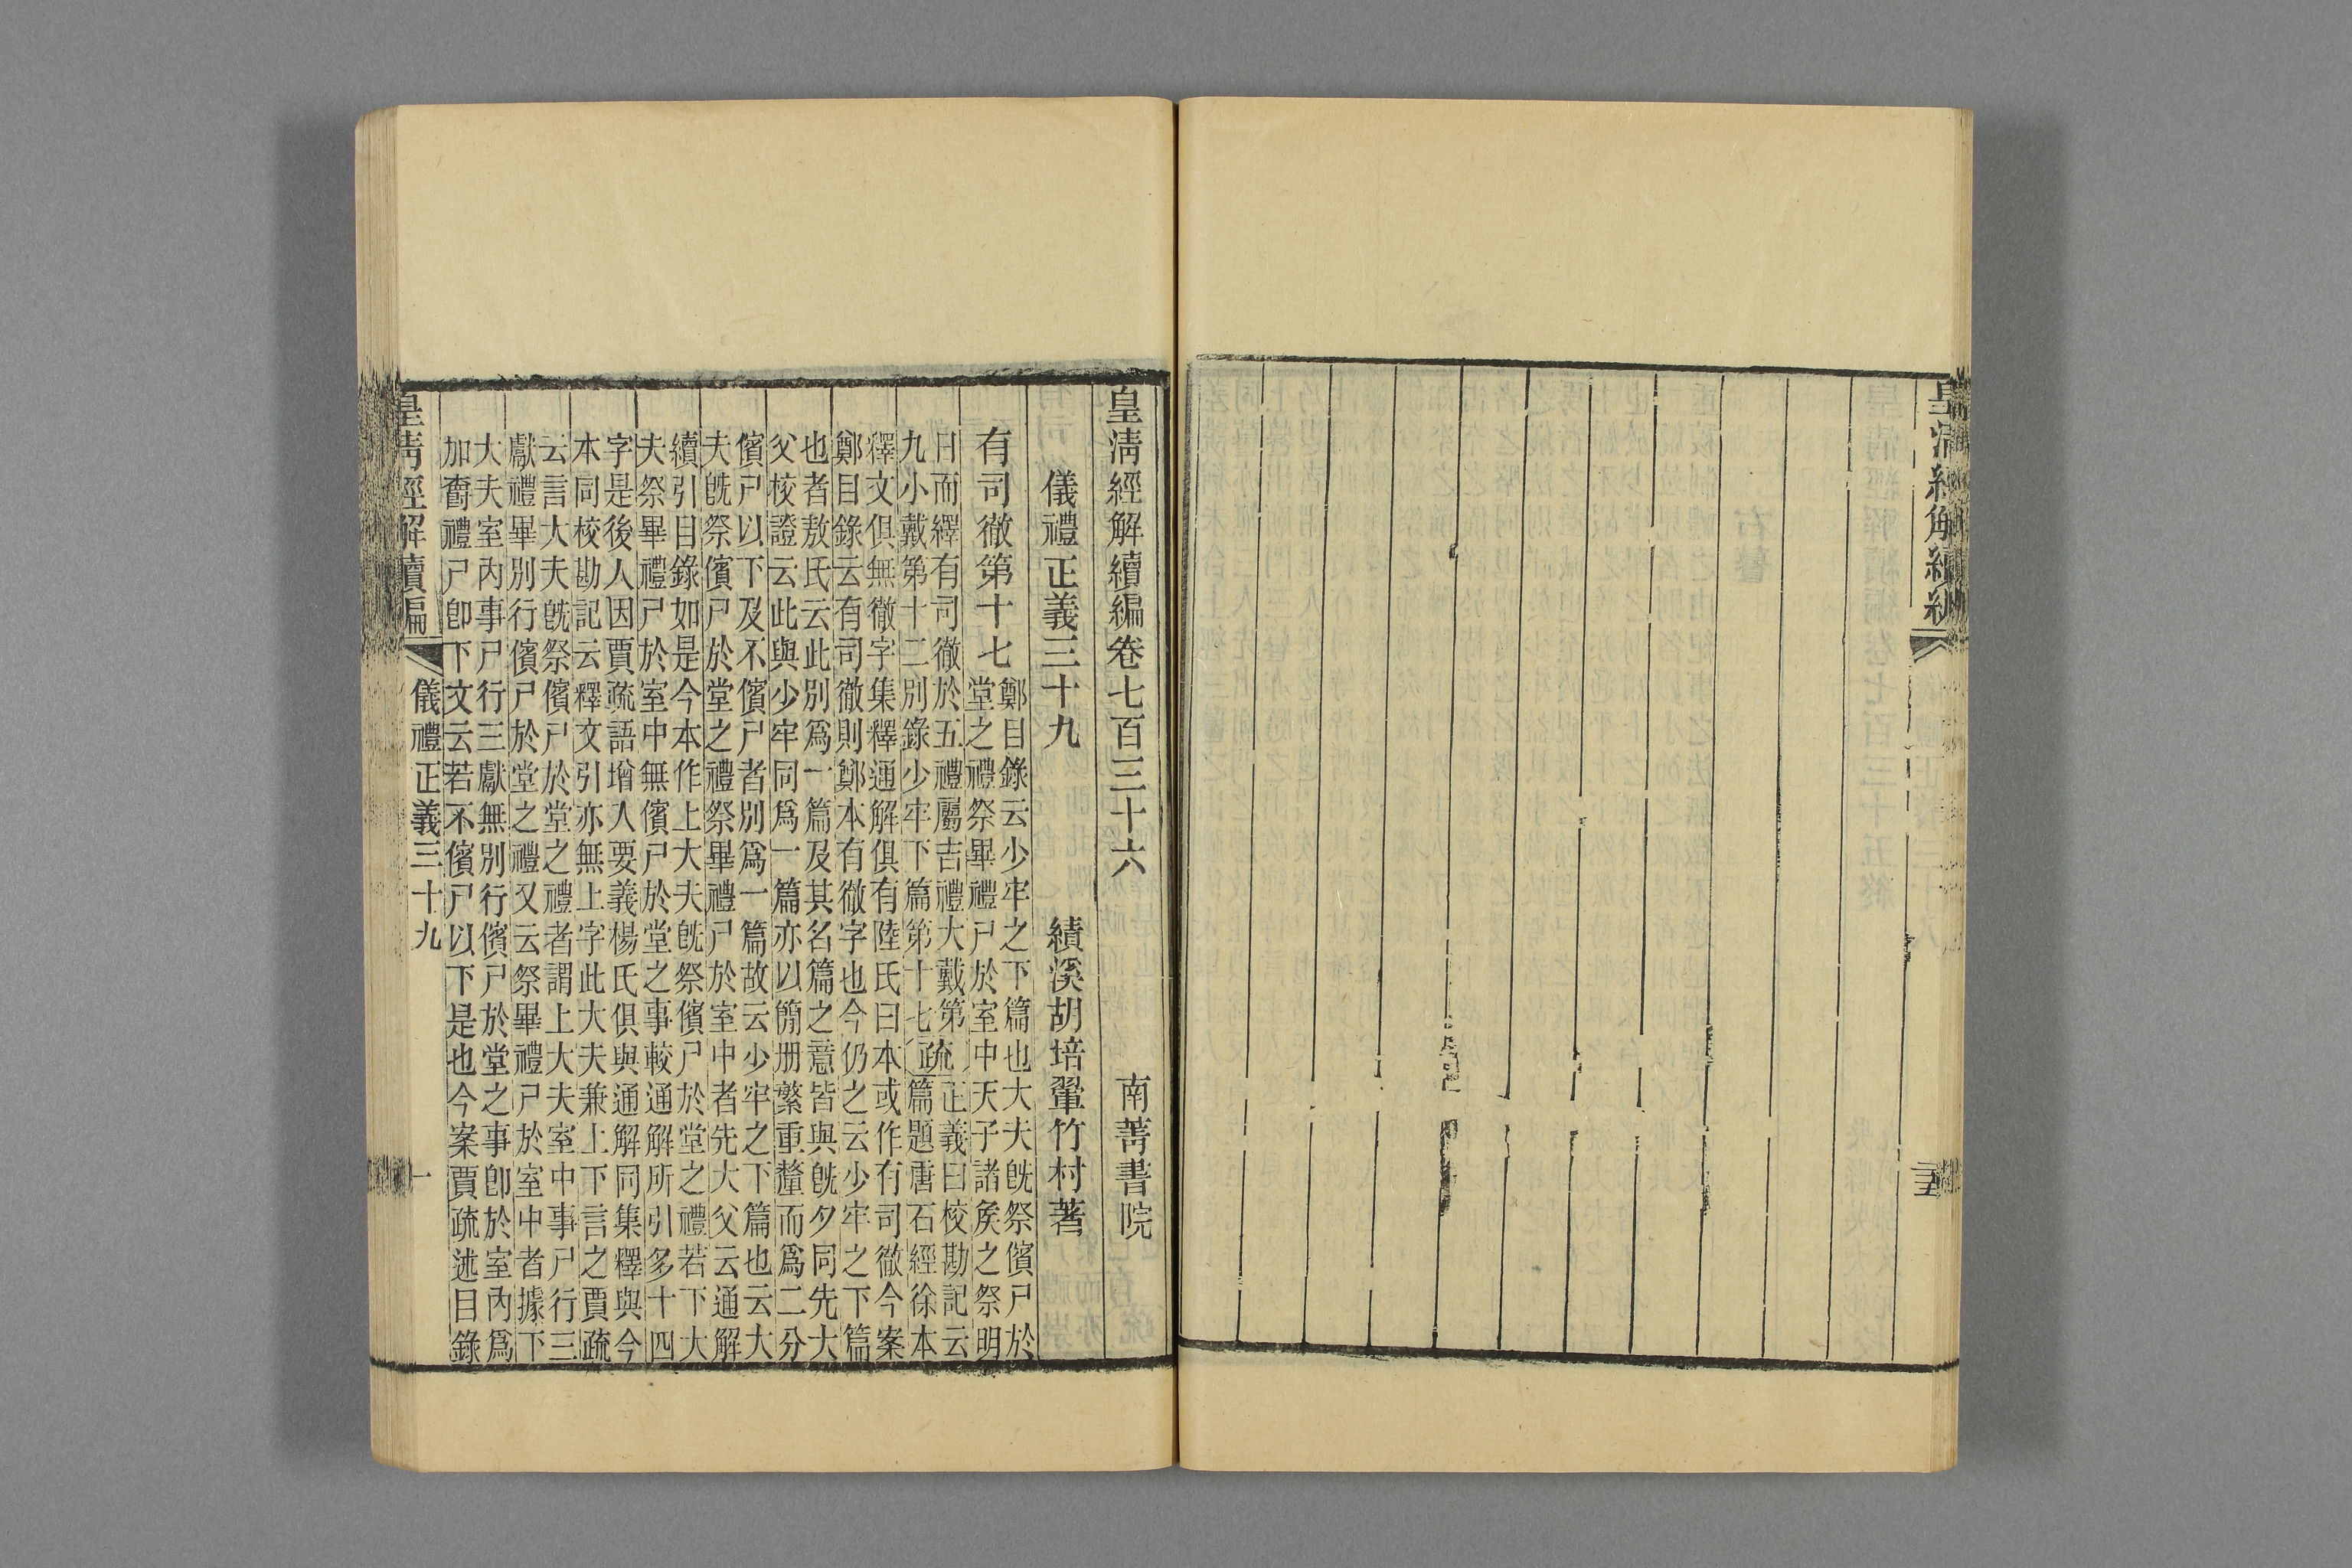 皇清經解續編
皇清經解續編卷七百三十六 南菁書院
儀禮正義三十九 績溪胡培翬竹村著
有司徹第十七
鄭目錄云少牢之下篇也大夫旣祭儐尸於
堂之禮祭畢禮尸於室中天子諸矦之祭明
日而繹有司徹於五禮屬吉禮大戴第
九小戴第十二別錄少牢下篇第十七
疏
正義曰校勘記云
篇題唐石經徐本
釋文俱無徹字集釋通解俱有陸氏曰本或作有司徹今案
鄭目錄云有司徹則鄭本有徹字也今仍之云少牢之下篇
也者敖氏云此別爲一篇及其名篇之意皆與旣夕同先大
父校證云此與少牢同爲一篇亦以簡册繁重釐而爲二分
儐尸以下及不儐尸者別爲一篇故云少牢之下篇也云大
夫旣祭儐尸於堂之禮祭畢禮尸於室中者先大父云通解
續引目錄如是今本作上大夫旣祭儐尸於堂之禮若下大
夫祭畢禮尸於室中無儐尸於堂之事較通解所引多十四
字是後人因賈疏語增人要義楊氏俱與通解同集釋與今
本同校勘記云釋文引亦無上字此大夫兼上下言之賈疏
云言大夫旣祭儐尸於堂之禮者謂上大夫室中事尸行三
獻禮畢別行儐尸於堂之禮又云祭畢禮尸於室中者據下
大夫室內事尸行三獻無別行儐尸於堂之事卽於室內爲
加爵禮尸卽下文云若不儐尸以下是也今案賈疏述目錄
皇淸經解續編 儀禮正義三十九 一